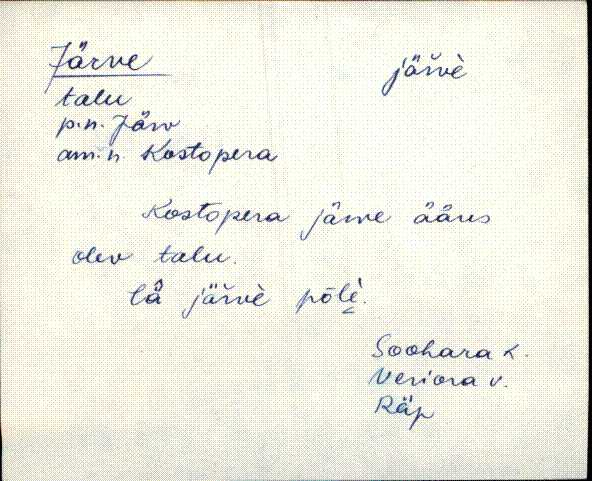 Järve
järvè
talu
p.n. Järv
am.n. Kostopera
Kostopera järve ääres
olev talu.
järvè pōlè.
Soohara k.
Veriora v.
Räp